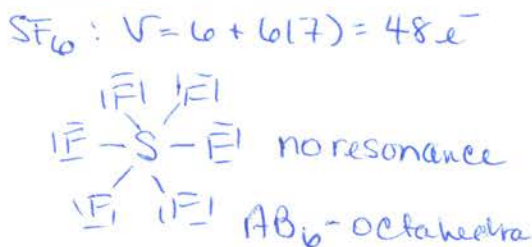 SF₆ : V = 6 + 6(7) = 48 e⁻
|F| |F|
|F – S – F| no resonance
|F| |F|
AB₆ - octahedra